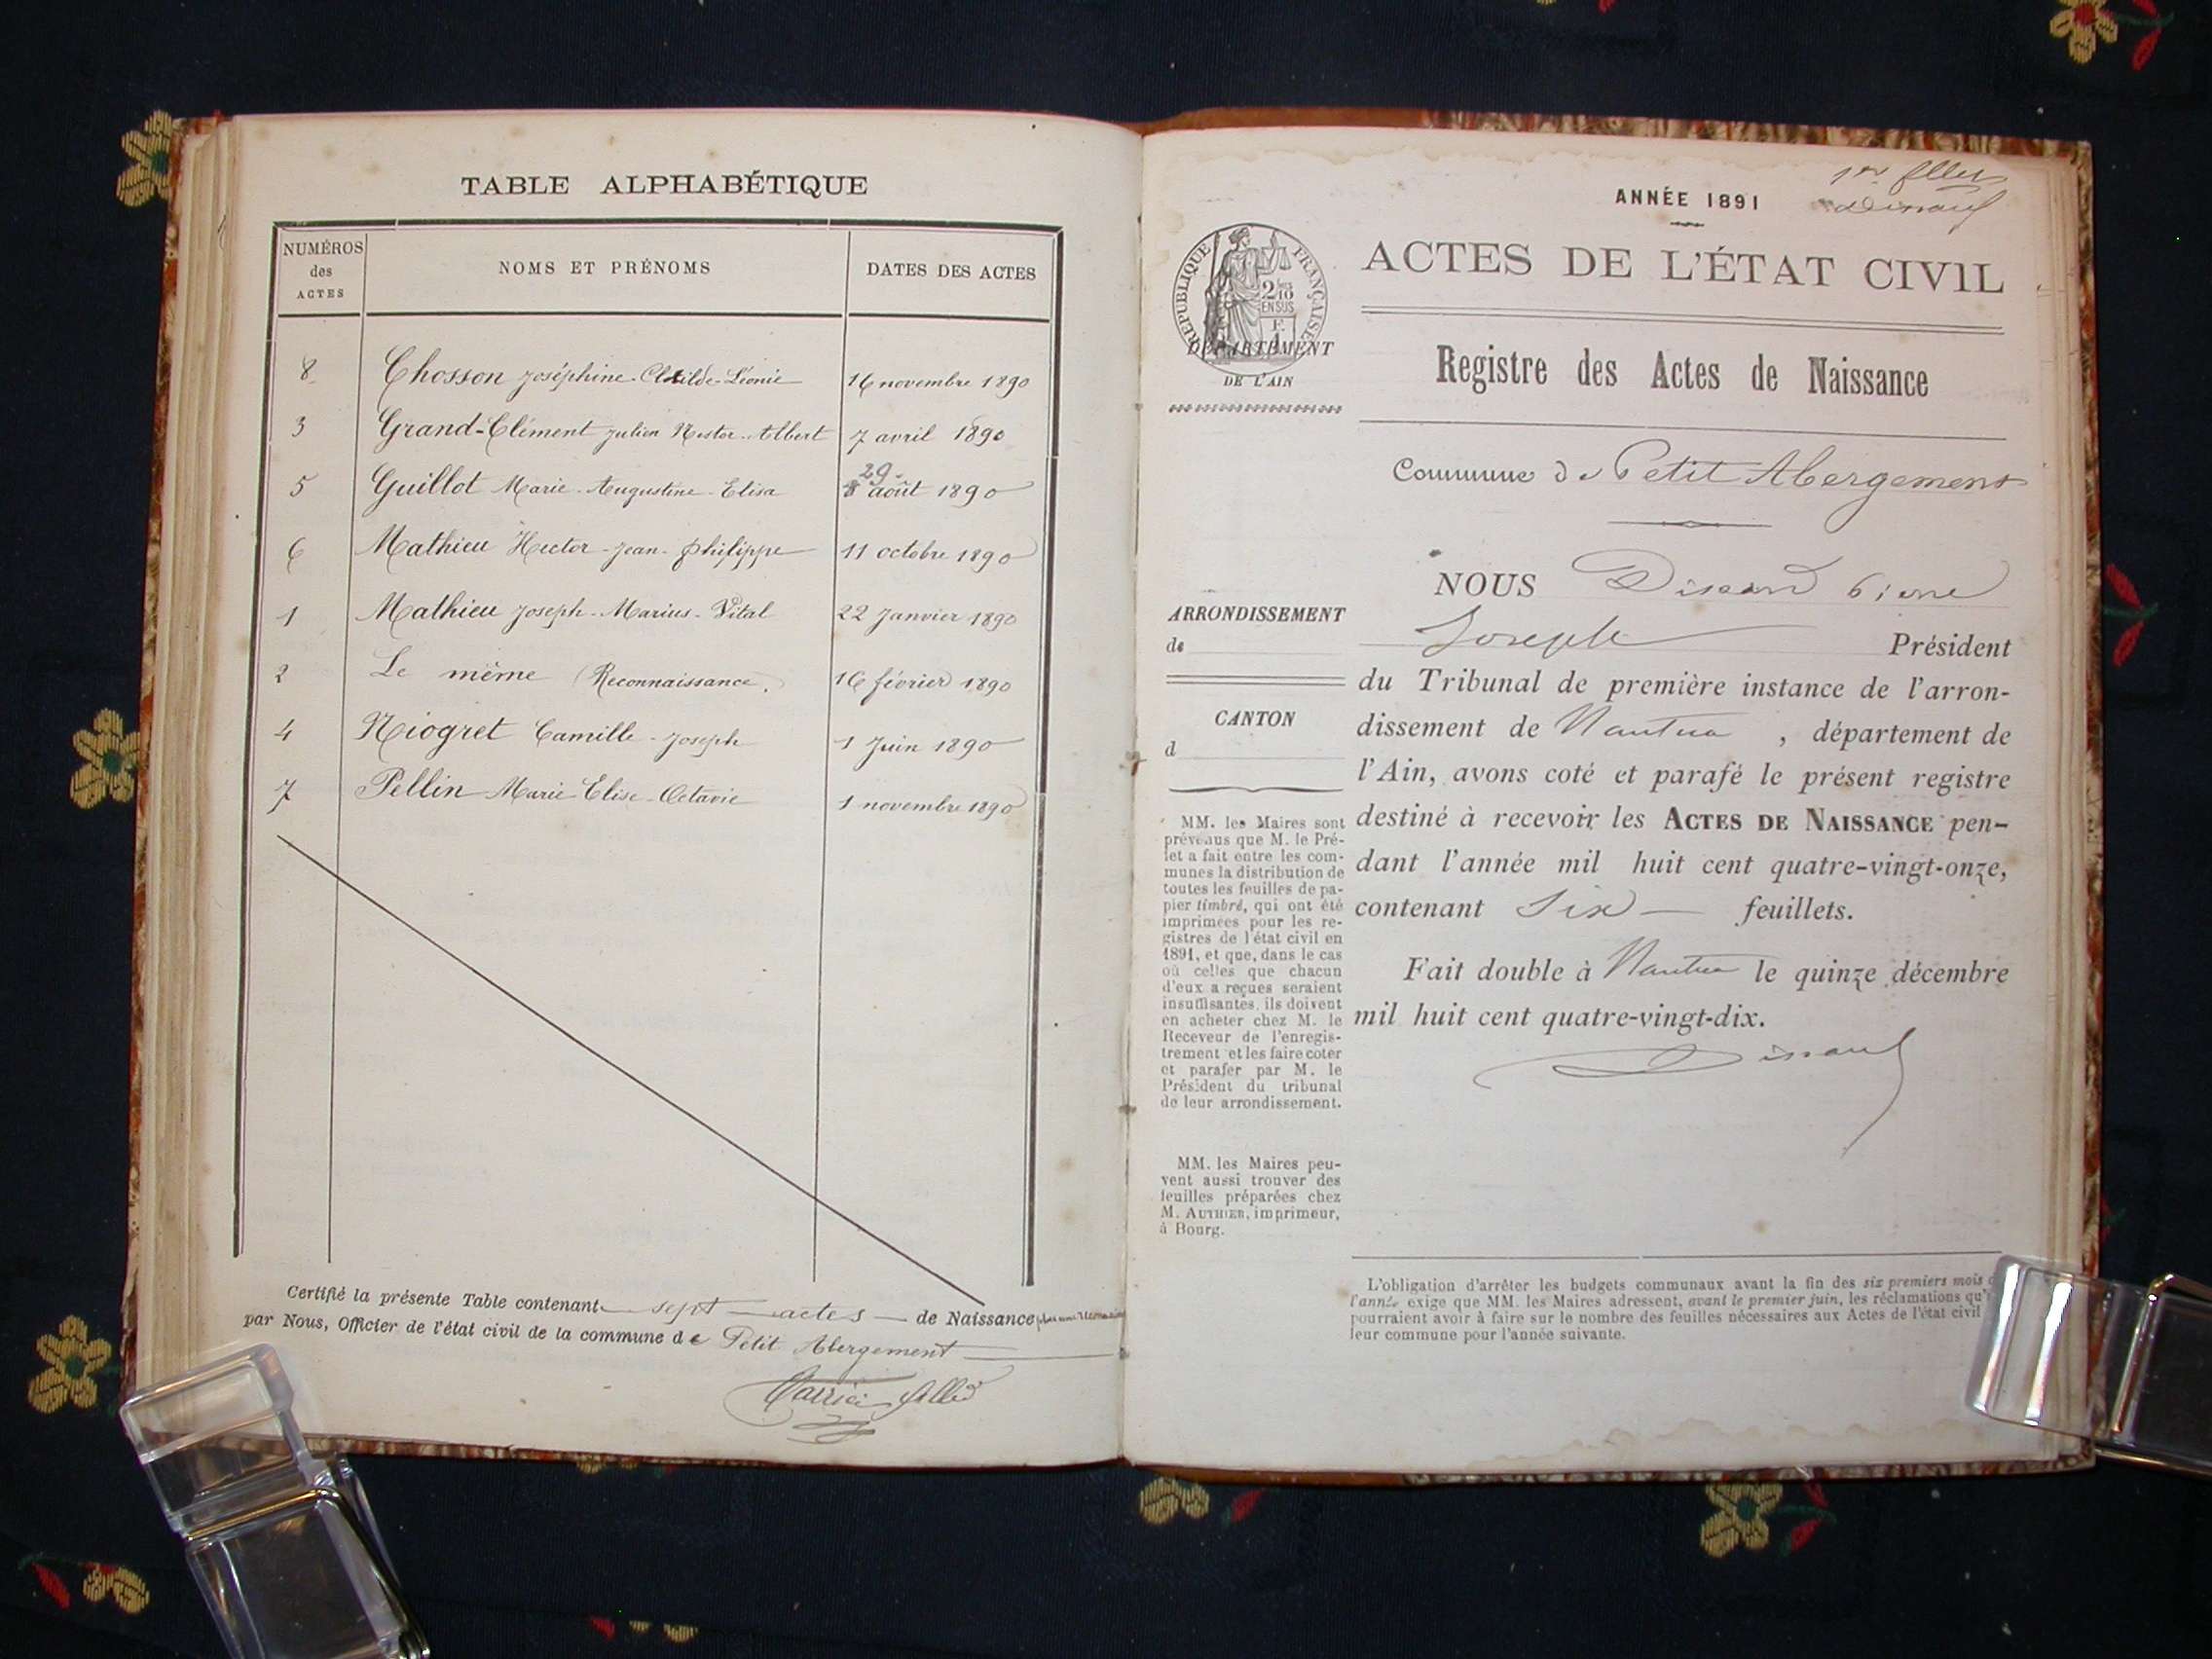 TABLE ALPHABÉTIQUE
NUMÉROS
des
ACTES
NOMS ET PRÉNOMS
DATES DES ACTES
8 Chosson Joséphine-Clotilde-Léonie 16 novembre 1890
3 Grand-Clément Julien Nestor-Albert 7 avril 1890
29
5 Guillot Marie-Augustine-Elisa août 1890
6 Mathieu Hector-Jean-Philippe 11 octobre 1890
1 Mathieu Joseph-Marius-Vital 22 Janvier 1890
2 Le même (Reconnaissance) 16 février 1890
4 Niogret Camille-Joseph 1 Juin 1890
7 Pellin Marie-Elise-Octavie 1 novembre 1890
Certifié la présente Table contenant sept actes de Naissance
par Nous, Officier de l'état civil de la commune de Petit Abergement
ANNÉE 1891
RÉPUBLIQUE FRANÇAISE
2/10
EN SUS
DÉPARTEMENT
DE L'AIN
ACTES DE L'ÉTAT CIVIL
Registre des Actes de Naissance
Commune de Petit Abergement
ARRONDISSEMENT
de
CANTON
d
MM. les Maires sont
prévenus que M. le Pré-
fet a fait entre les com-
munes la distribution de
toutes les feuilles de pa-
pier timbré, qui ont été
imprimées pour les re-
gistres de l'état civil en
1891, et que, dans le cas
où celles que chacun
d'eux a reçues seraient
insuffisantes, ils doivent
en acheter chez M. le
Receveur de l'enregis-
trement et les faire coter
et parafer par M. le
Président du tribunal
de leur arrondissement.
MM. les Maires peu-
vent aussi trouver des
feuilles préparées chez
M. AUTHIER, imprimeur,
à Bourg.
NOUS
Joseph Président
du Tribunal de première instance de l'arron-
dissement de Nantua, département de
l'Ain, avons coté et parafé le présent registre
destiné à recevoir les ACTES DE NAISSANCE pen-
dant l'année mil huit cent quatre-vingt-onze,
contenant Six feuillets.
Fait double à Nantua le quinze décembre
mil huit cent quatre-vingt-dix.
L'obligation d'arrêter les budgets communaux avant la fin des six premiers mois
l'année exige que MM. les Maires adressent, avant le premier juin, les réclamations qu'
pourraient avoir à faire sur le nombre des feuilles nécessaires aux Actes de l'état civil
leur commune pour l'année suivante.